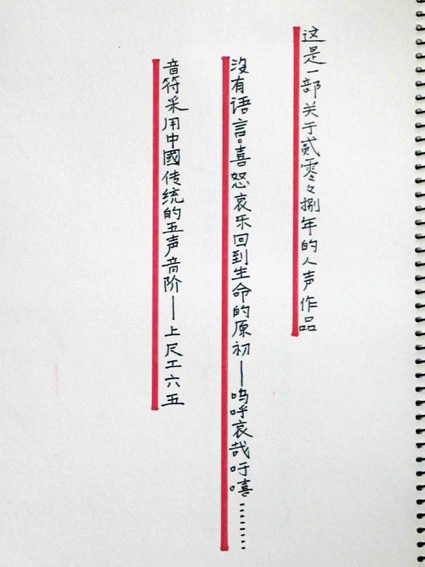 这是一部关于贰零々捌年的人声作品
沒有语言。喜怒哀乐回到生命的原初——呜呼哀哉吁嘻………
音符采用中國传统的五声音阶——上尺工六五